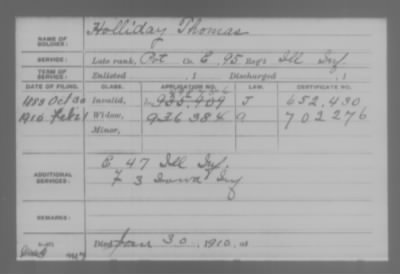 NAME OF SOLDIER: Holliday Thomas
SERVICE: Late rank, Pvt Co. E, 95 Reg't Ill Inf.
TERM OF SERVICE: Enlisted , 1 Discharged , 1
DATE OF FILING. CLASS. APPLICATION NO. LAW. CERTIFICATE NO.
Oct 30 Invalid, 935.409 J 652.430
1910 Feb 1 Widow, 936384 a 702276
Minor,
ADDITIONAL SERVICES: E 47 Ill Inf.
F 3 Iowa Inf
REMARKS:
Died Jan 30, 1910, at